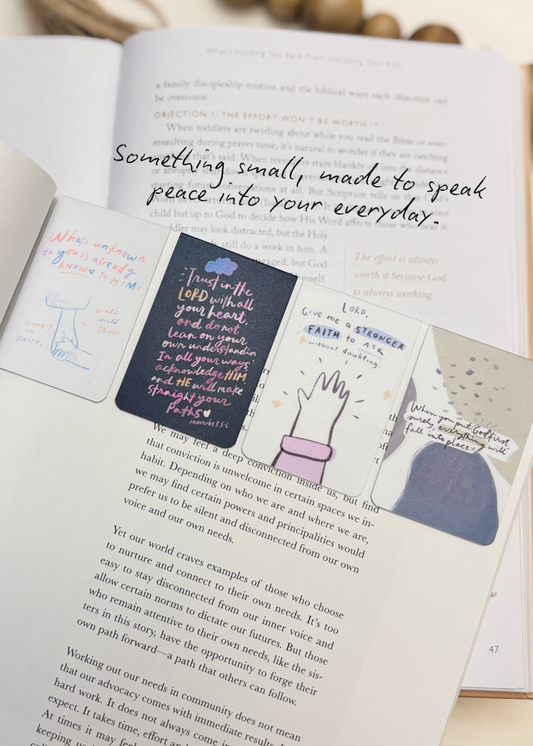 What's Holding You Back From Discipling Your Kids
a family discipleship routine and the biblical ways each objection can
be overcome.
OBJECTION 1: THE EFFORT WON'T BE WORTH IT
When toddlers are twirling about while you read the Bible or
during prayer time, it's natural to wonder if they are catching
that's said. When stare blankly into the distance
Something small, made to speak
peace into your everyday.
child but up to God to decide how His Word affects those who hear it.
may look distracted, but the Holy
still do a work in him. A
but God
The effort is always
worth it because God
is always working.
What's unknown
to you is already
KNOWN TO HIM!
FAITH.
Trust in the
LORD with all
your heart,
and do not
lean on your
own understandin
In all your ways
acknowledge HIM
and HE will make
straight your
paths
PROVERBS 3:5-6
LORD,
Give me a STRONGER
FAITH to ASK
without doubting
When you put God first
surely, everything will
fall into place!
We may feel a deep conviction inside us, but find
that conviction is unwelcome in certain spaces we in-
habit. Depending on who we are and where we are,
we may find certain powers and principalities would
prefer us to be silent and disconnected from our own
voice and our own needs.
Yet our world craves examples of those who choose
to nurture and connect to their own needs. It's too
easy to stay disconnected from our inner voice and
allow certain norms to dictate our futures. But those
who remain attentive to their own needs, like the sis-
ters in this story, have the opportunity to forge their
own path forward—a path that others can follow.
Working out our needs in community does not mean
that our advocacy comes with immediate results.
hard work. It does not always come in
expect. It takes time, effort an
At times it may feel
keeping
47